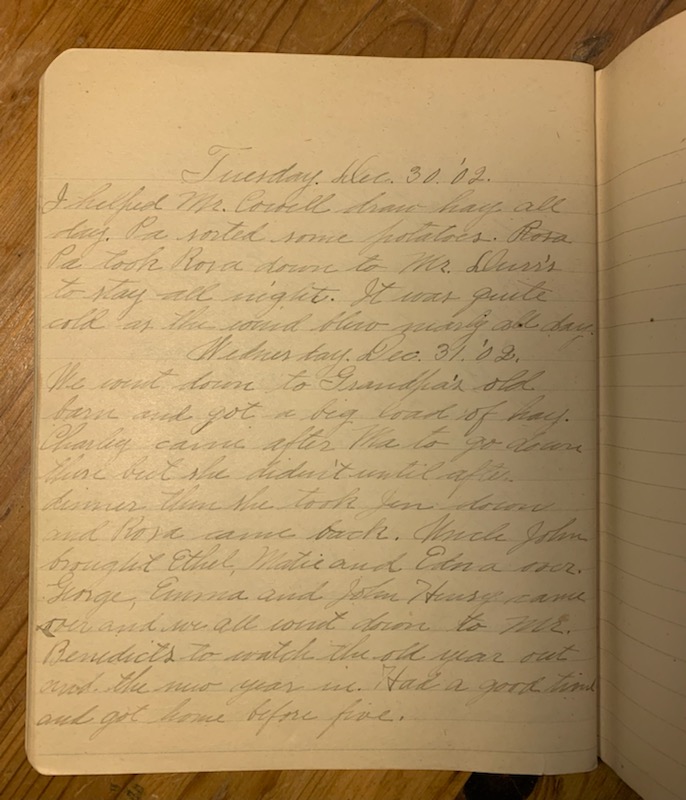 Tuesday. Dec. 30. '02.
I helped Mr. Cowell draw hay all
day. Pa sorted some potatoes. Rosa
Pa took Rosa down to Mr. Durr's
to stay all night. It was quite
cold as the wind blew nearly all day.
Wednesday. Dec. 31. '02.
We went down to Grandpa's old
barn and got a big load of hay.
Charley came after Ma to go down
there but she didn't until after
dinner then she took Jen down
and Rosa came back. Uncle John
brought Ethel, Matie and Edna over.
George, Emma and John Henry came
over and we all went down to Mr.
Benedicts to watch the old year out
and the new year in. Had a good time
and got home before five.